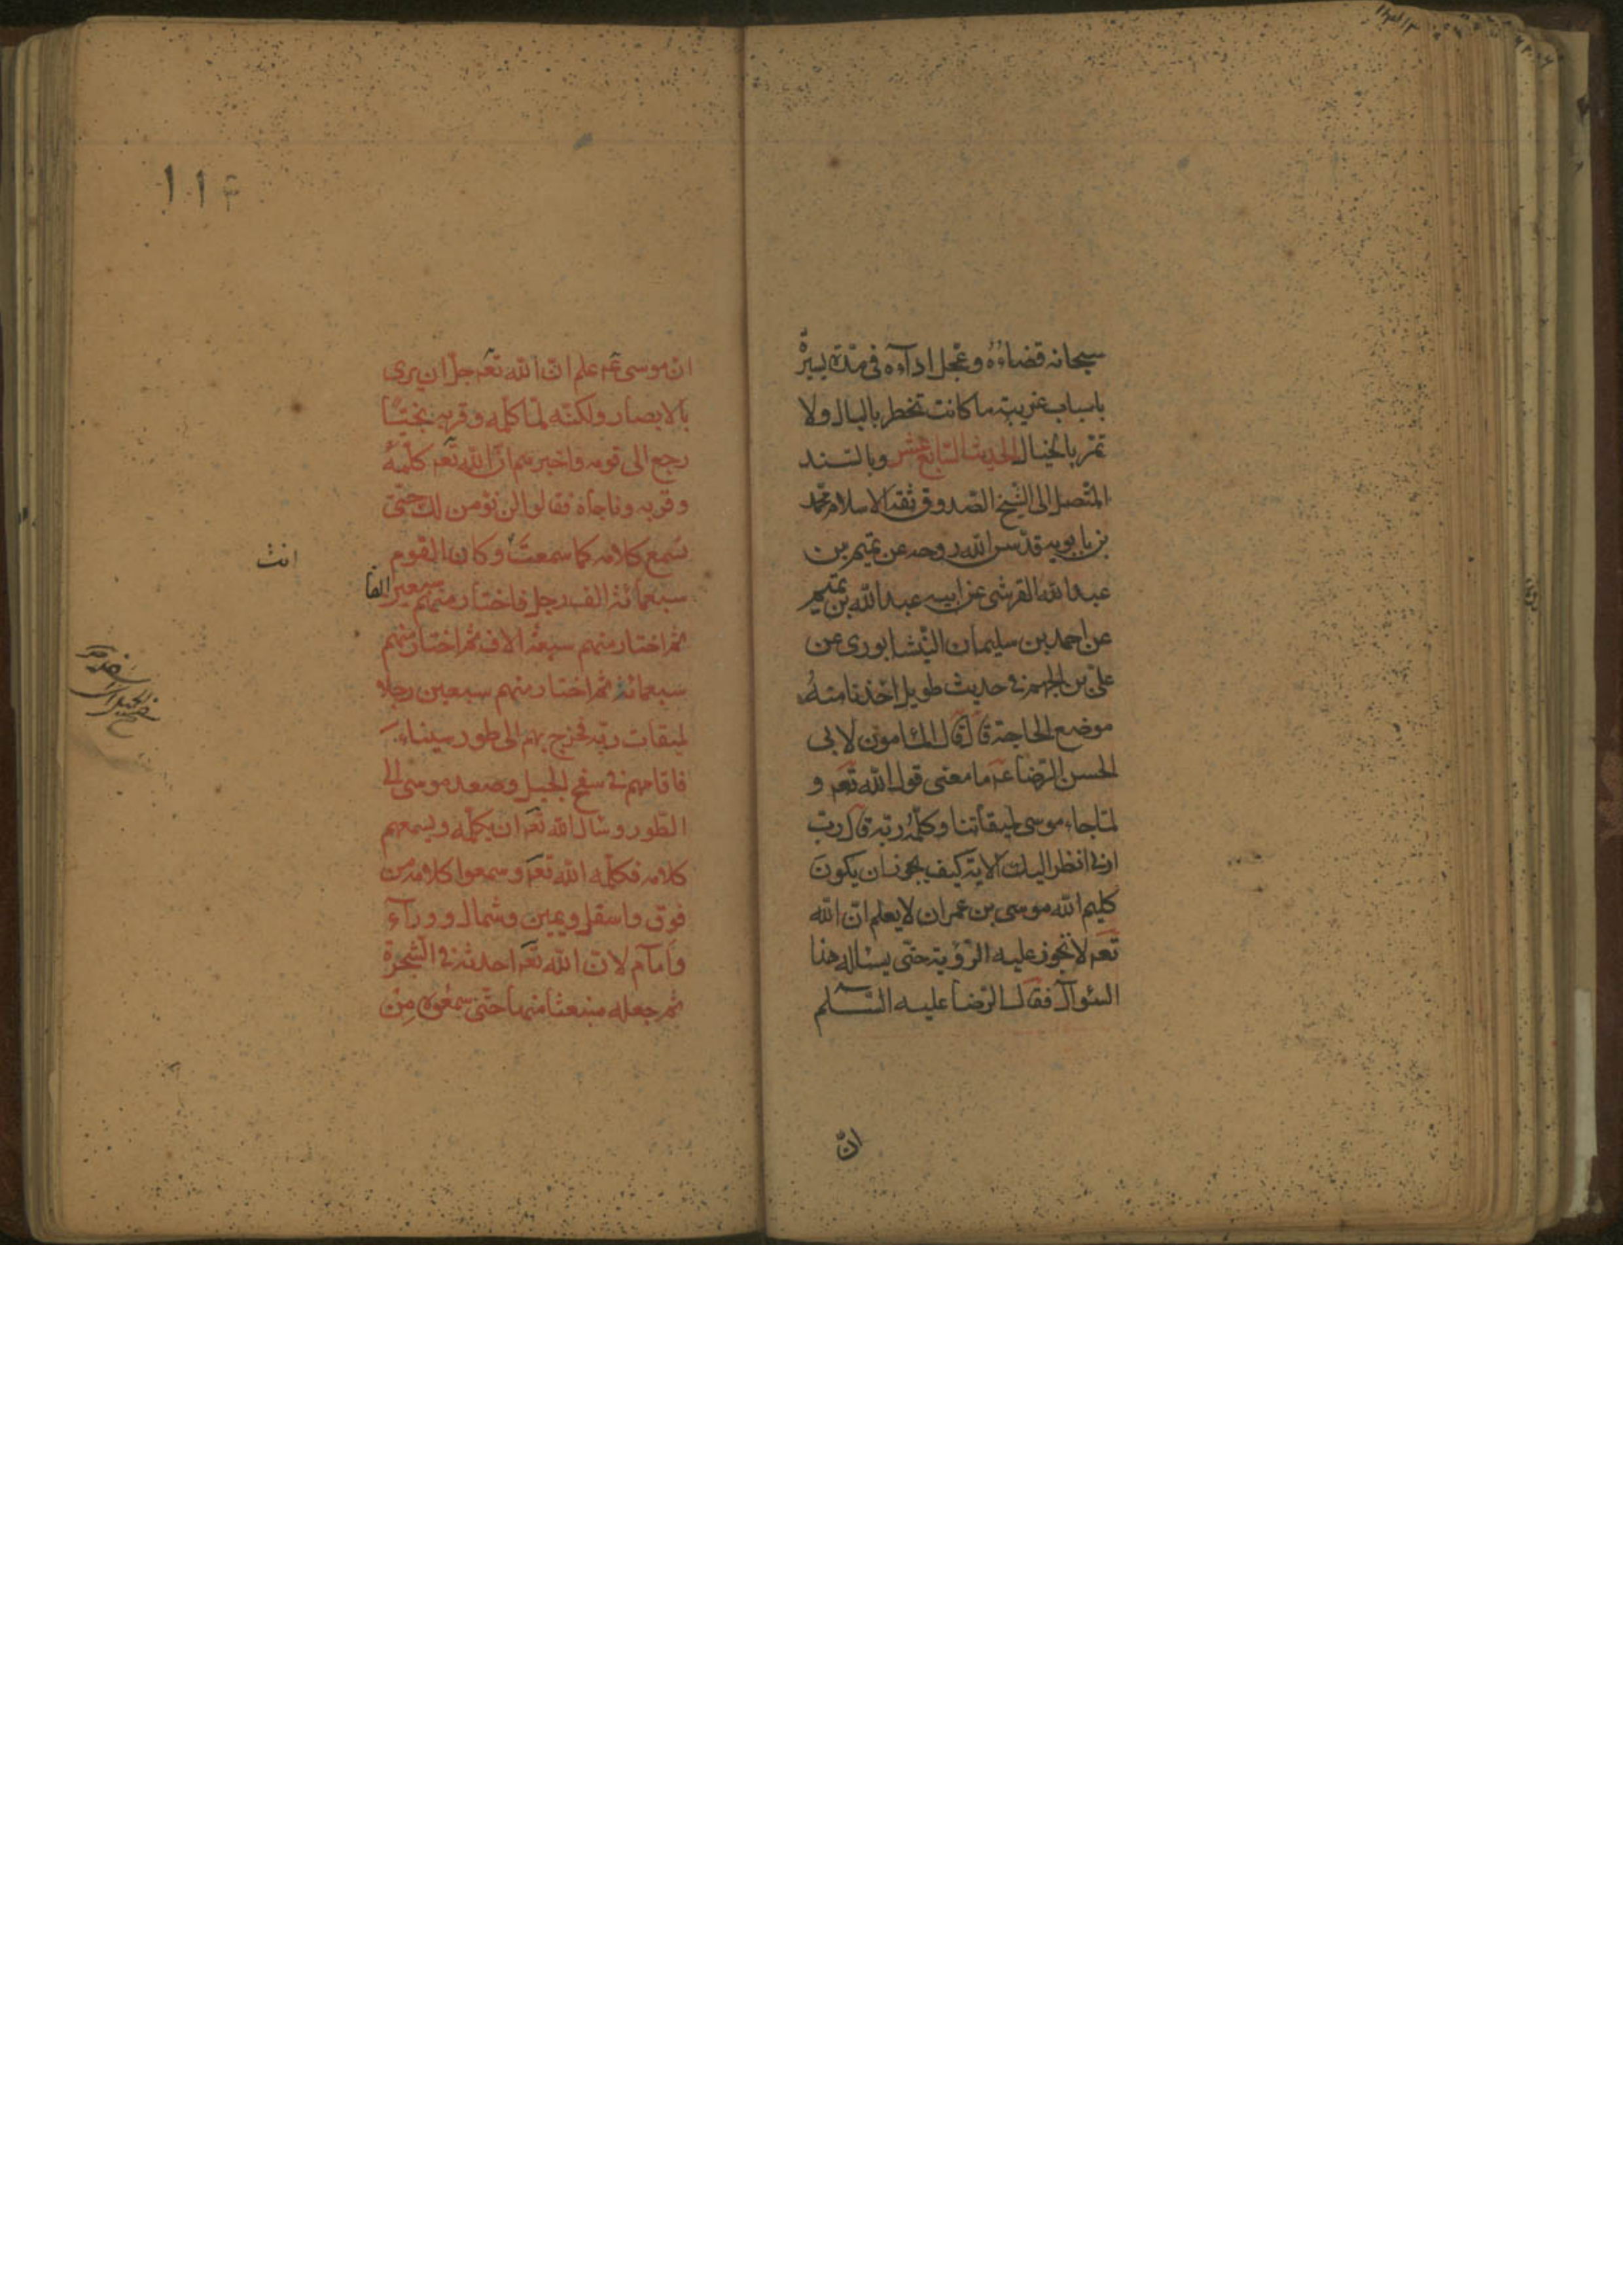 سبحانه قضاءه وعجل اداءه فى مدة يسيرة
باسباب غريبة ما كانت تخطر بالبال ولا
تمر بالخيال الحديث السابع عشر وبالسند
المتصل الى الشيخ الصدوق ثقة الاسلام محمد
بن بابويه قدس الله روحه عن تميم بن
عبد الله القرشى عن ابيه عبد الله بن تميم
عن احمد بن سليمان النيشابورى عن
على بن الجهم فى حديث طويل اخذنا منه
موضع الحاجة قال قال المامون لابى
الحسن الرضا عم ما معنى قول الله تعم و
لما جاء موسى لميقاتنا وكلمه ربه قال رب
ارنى انظر اليك الاية كيف يجوز ان يكون
كليم الله موسى بن عمران لا يعلم ان الله
تعم لا تجوز عليه الرؤية حتى يساله هذا
السئوال فقال الرضا عليه السلم
انّ
١١٤
ان موسى عم علم ان الله تعم جل ان يرى
بالابصار ولكنه لما كلمه وقربه نجيّا
رجع الى قومه واخبرهم ان الله تعم كلمه
وقربه وناجاه فقالوا لن نؤمن لك حتى
نسمع كلامه كما سمعت وكان القوم
انت
سبعمائة الف رجل فاختار منهم سبعين الفا
ثم اختار منهم سبعة الاف ثم اختار منهم
سبعمائة ثم اختار منهم سبعين رجلا
لميقات ربه فخرج بهم الى طور سيناء
فاقامهم فى سفح الجبل وصعد موسى الى
الطور وسال الله تعم ان يكلمه ويسمعهم
كلامه فكلمه الله تعم وسمعوا كلامه من
فوق واسفل ويمين وشمال ووراء
وامام لان الله تعم احدثه فى الشجرة
ثم جعله منبعثا منها حتى سمعوه من